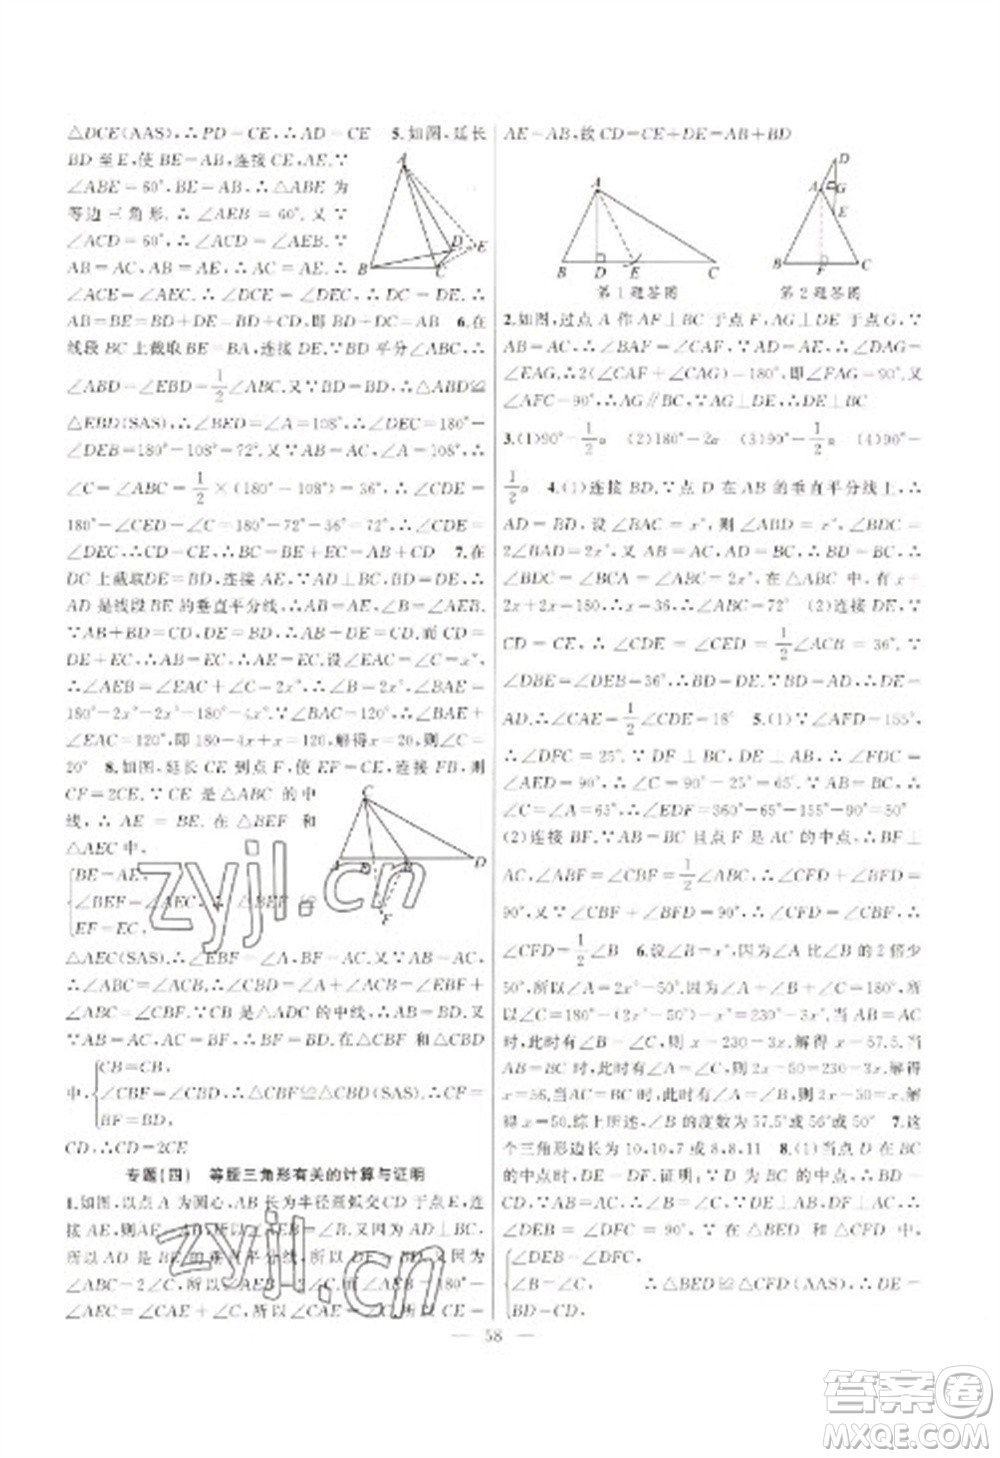 △DCE(AAS),∴PD=CE,∴AD=CE 5.如图,延长
BD至E,使BE=AB,连接CE,AE.∵
∠ABE=60°,BE=AB,∴△ABE为
等边三角形.∴∠AEB=60°.又∵
∠ACD=60°,∴∠ACD=∠AEB.∵
AB=AC,AB=AE,∴AC=AE.∴
∠ACE=∠AEC.∴∠DCE=∠DEC.∴DC=DE.∴
AB=BE=BD+DE=BD+CD,即BD+DC=AB 6.在
线段BC上截取BE=BA,连接DE.∵BD平分∠ABC,∴
∠ABD=∠EBD=1/2∠ABC.又∵BD=BD,∴△ABD≌
△EBD(SAS),∴∠BED=∠A=108°,∴∠DEC=180°-
∠DEB=180°-108°=72°.又∵AB=AC,∠A=108°,∴
∠C=∠ABC=1/2×(180°-108°)=36°,∴∠CDE=
180°-∠CED-∠C=180°-72°-36°=72°.∴∠CDE=
∠DEC,∴CD=CE,∴BC=BE+CE=AB+CD 7.在
DC上截取DE=BD,连接AE,∵AD⊥BC,BD=DE,∴
AD是线段BE的垂直平分线,∴AB=AE,∴∠B=∠AEB.
∵AB+BD=DC,DE=BD,∴AB+DE=CD.而CD=
DE+EC,∴AB=EC,∴AE=EC.设∠EAC=∠C=x°,
∴∠AEB=∠EAC+∠C=2x°,∴∠B=2x°,∠BAE=
180°-2x°-2x°=180°-4x°.∵∠BAC=120°,∴∠BAE+
∠EAC=120°,即180-4x+x=120,解得x=20,则∠C=
20° 8.如图,延长CE到点F,使EF=CE,连接FB,则
CF=2CE.∵CE是△ABC的中
线,∴AE=BE.在△BEF和
△AEC中,
BE=AE,
∠BEF=∠AEC,∴△BEF≌
EF=EC,
△AEC(SAS).∴∠EBF=∠A,BF=AC.又∵AB=AC,
∴∠ABC=∠ACB,∴∠CBD=∠A+∠ACB=∠EBF+
∠ABC=∠CBF.∵CB是△ADC的中线,∴AB=BD.又∵
AB=AC,AC=BF,∴BF=BD.在△CBF与△CBD
CB=CB,
中,∠CBF=∠CBD,∴△CBF≌△CBD(SAS),∴CF=
BF=BD,
CD,∴CD=2CE
专题(四) 等腰三角形有关的计算与证明
1.如图,以点A为圆心,AB长为半径画弧交CD于点E,连
接AE,则AE=AB,所以∠AEB=∠B.又因为AD⊥BC,
所以AD是BE的垂直平分线,所以DE=BD.又因为
∠ABC=2∠C,所以∠AEB=2∠C.因为∠AEB=180°-
∠AEC=∠CAE+∠C,所以∠CAE=∠C,所以CE=
AE=AB,故CD=CE+DE=AB+BD
第1题答图
第2题答图
2.如图,过点A作AF⊥BC于点F,AG⊥DE于点G.∵
AB=AC,∴∠BAF=∠CAF,∵AD=AE,∴∠DAG=
∠EAG,∴2(∠CAF+∠CAG)=180°,即∠FAG=90°.又
∠AFC=90°,∴AG∥BC,∵AG⊥DE,∴DE⊥BC
3.(1)90°-1/2α (2)180°-2α (3)90°-1/2α (4)90°-
1/2α 4.(1)连接BD.∵点D在AB的垂直平分线上,∴
AD=BD,设∠BAC=x°,则∠ABD=x°,∴∠BDC=
2∠BAD=2x°,∵BD=BC,∴∠C=∠BDC=2x°,又
∵AB=AC,∴∠ABC=∠C=2x°,在△ABC中,有x+
2x+2x=180,∴x=36,∴∠ABC=72° (2)连接DE,∵
CD=CE,∴∠CDE=∠CED=1/2∠ACB=36°,又∵
∠DBE=∠BAD=36°,∴∠DBE=∠CED,∴BD=
DE,∴∠CDE=1/2∠CDE=18° 5.(1)∵∠AFD=155°,
∴∠DFC=25°.∵DF⊥BC,DE⊥AB,∴∠FDC=
∠AED=90°,∴∠C=90°-25°=65°.∵AB=BC,∴
∠C=∠A=65°,∴∠EDF=360°-65°-155°-90°=50°
(2)连接BF.∵AB=BC且点F是AC的中点,∴BF⊥
AC,∠ABF=∠CBF=1/2∠ABC,∴∠CFD+∠BFD=
90°,又∵∠CBF+∠BFD=90°,∴∠CFD=∠CBF,∴
∠CFD=1/2∠B 6.设∠B=x°,因为∠A比∠B的2倍少
50°,所以∠A=2x°-50°,因为∠A+∠B+∠C=180°,所
以∠C=180°-(2x°-50°)-x°=230°-3x°.当AB=AC
时,有∠B=∠C,所以x=230-3x,解得x=57.5,当
AB=BC时,有∠A=∠C,所以2x-50=230-3x,解得
x=56,当AC=BC时,有∠A=∠B,则2x-50=x,解
得x=50.综上所述,∠B的度数为57.5°或56°或50° 7.这
个三角形边长为10,10,7或8,8,11 8.(1)当点D在BC
的中点时,DE=DF.理由:∵点D为BC的中点,∴BD=
CD.∵AB=AC,∴∠B=∠C.∵DE⊥AB,DF⊥AC,∴
∠DEB=∠DFC=90°,∵在△BED和△CFD中,
∠DEB=∠DFC,
∠B=∠C, ∴△BED≌△CFD(AAS),∴DE=
BD=CD,
58
zyjl.cn
zyjl.cn
答案卷
MXQE.COM